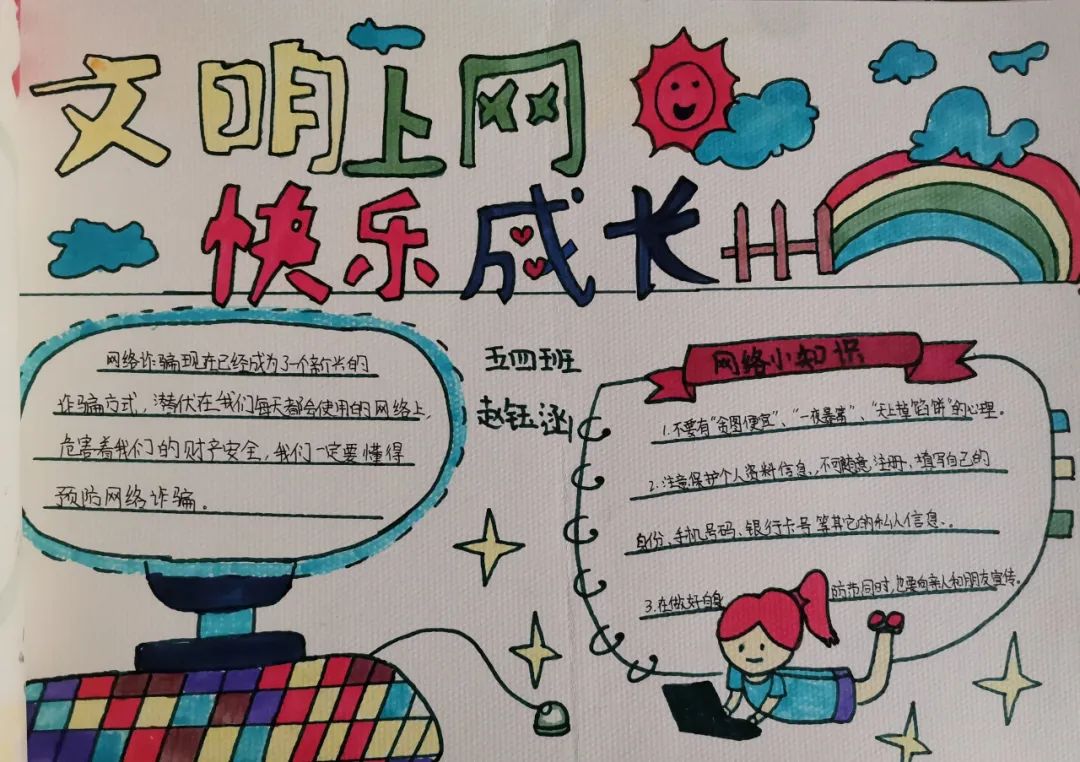 文明上网
快乐成长
网络诈骗现在已经成为了一个新兴的
诈骗方式，潜伏在我们每天都会使用的网络上，
危害着我们的财产安全，我们一定要懂得
预防网络诈骗。
五四班
赵钰涵
网络小知识
1.不要有“贪图便宜”、“一夜暴富”、“天上掉馅饼”的心理。
2.注意保护个人资料信息、不可随意注册、填写自己的
身份、手机号码、银行卡号等其它的私人信息、。
3.在做好自身 防范同时，也要向亲人和朋友宣传。